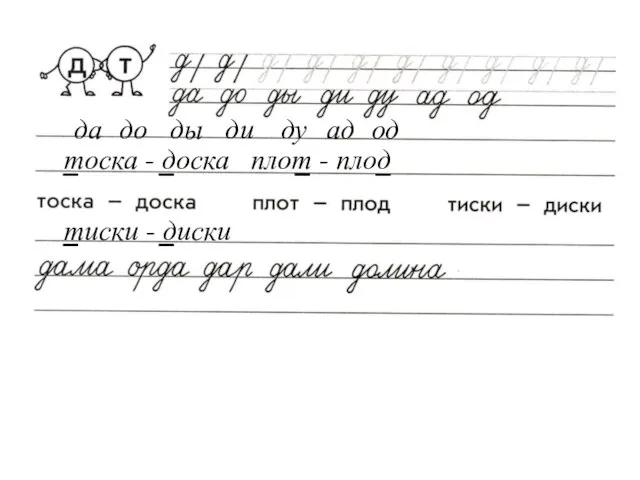 Д Т д д д д д д д д д д
да до ды ди ду ад од
да до ды ди ду ад од
тоска - доска плот - плод
тоска – доска плот – плод тиски – диски
тиски - диски
дама орда дар дали долина